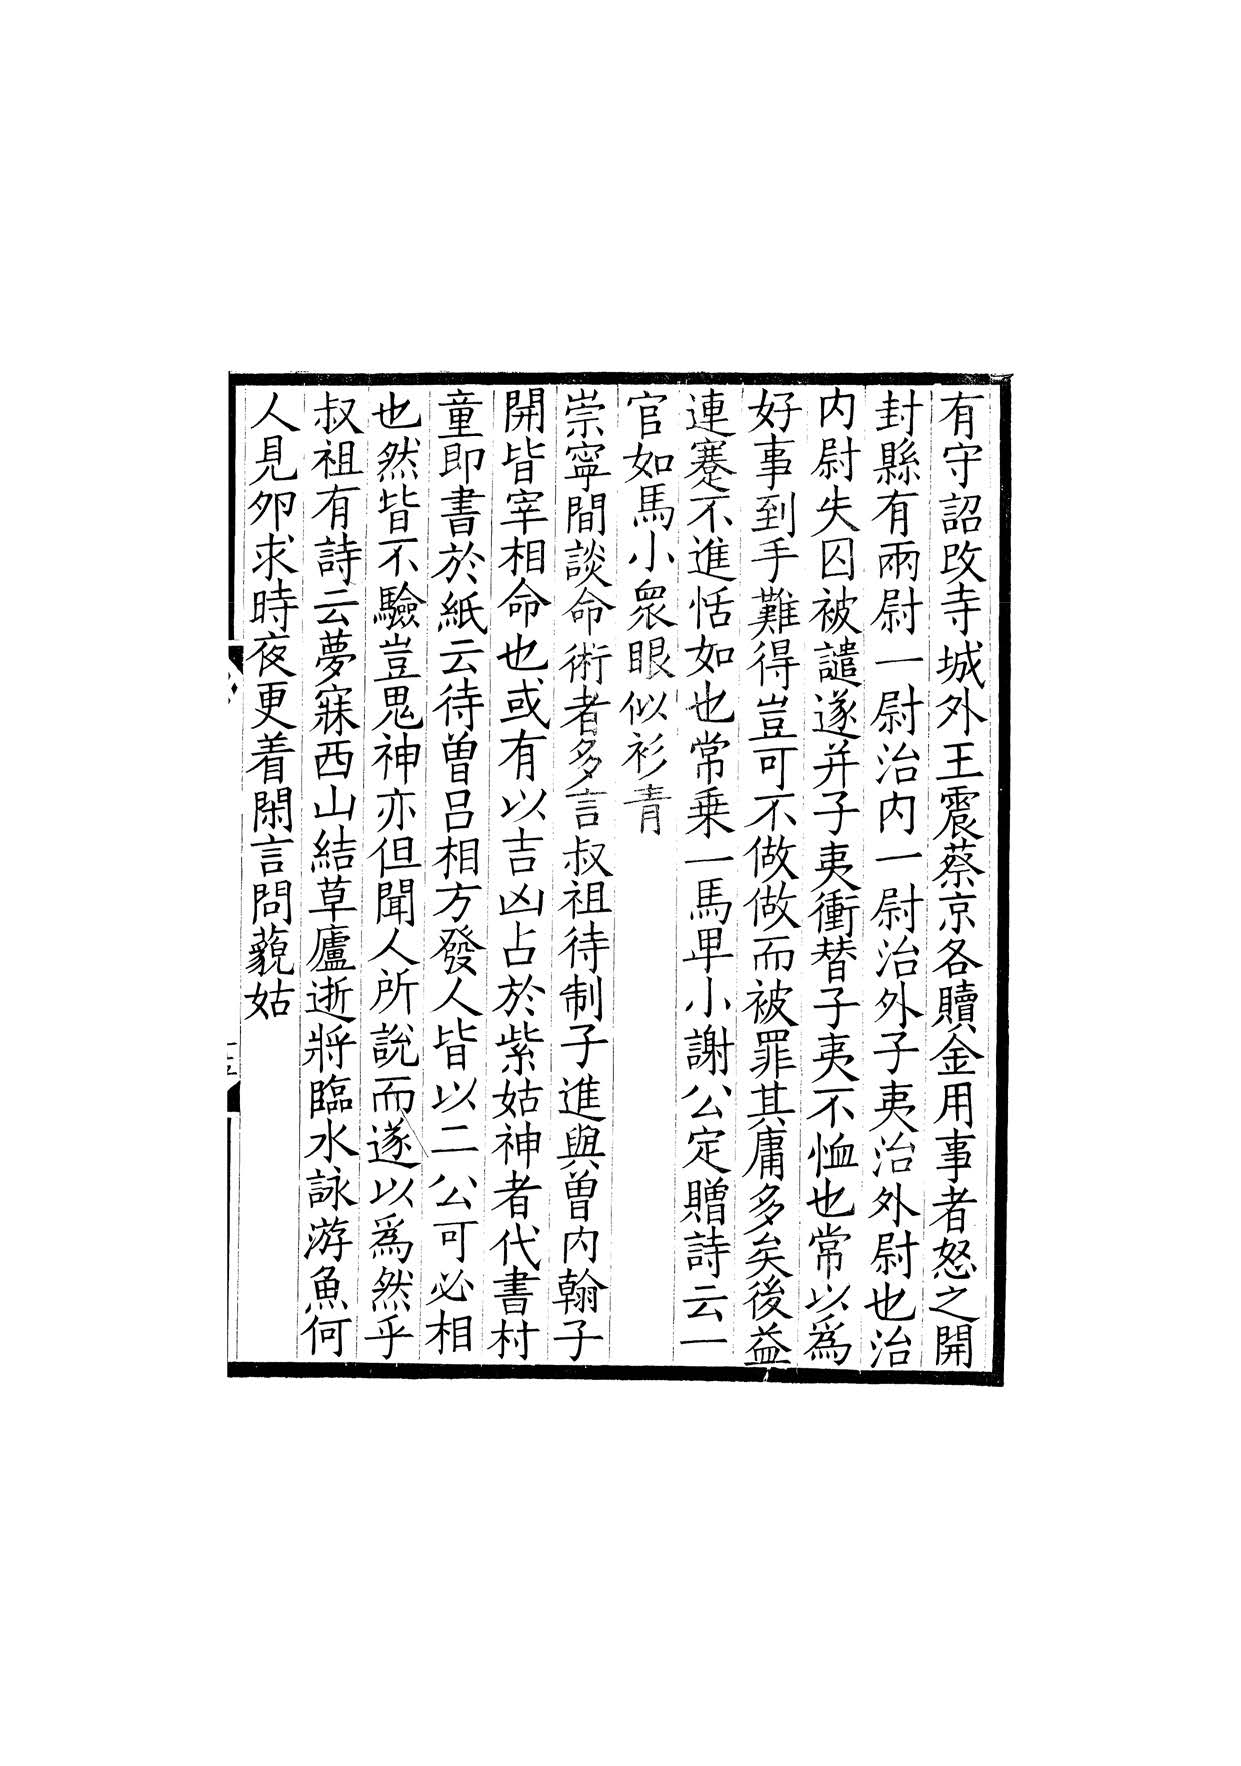 有守詔改寺城外王震蔡京各贖金用事者怒之開
封縣有兩尉一尉治内一尉治外子夷治外尉也治
内尉失囚被譴遂并子夷衝替子夷不恤也常以爲
好事到手難得豈可不做做而被罪其庸多矣後益
連蹇不進恬如也常乗一馬卑小謝公定贈詩云一
官如馬小衆眼似衫青
崇寧間談命術者多言叔祖待制子進與曽内翰子
開皆宰相命也或有以吉凶占於紫姑神者代書村
童即書於紙云待曽吕相方發人皆以二公可必相
也然皆不驗豈鬼神亦但聞人所說而遂以爲然乎
叔祖有詩云夢寐西山結草廬逝將臨水詠游魚何
人見夘求時夜更着閑言問藐姑